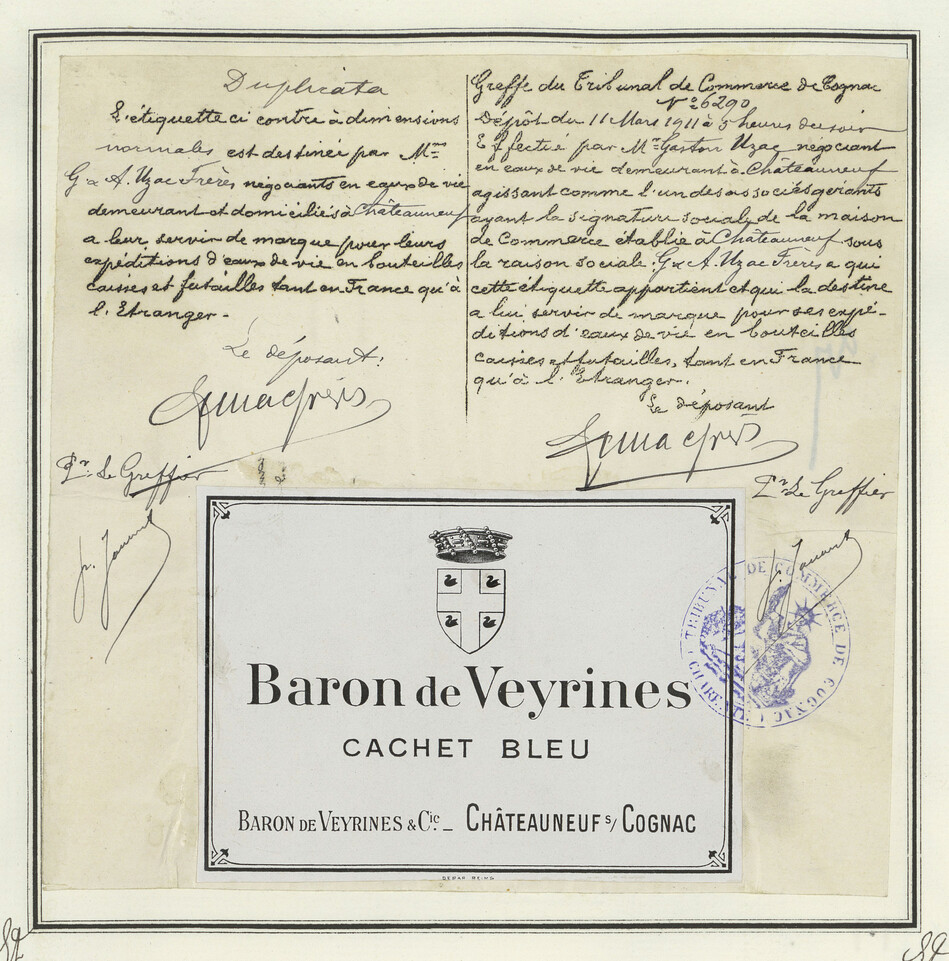 Duplicata
L'étiquette ci contre à dimensions
normales est destinée par Mrs
G & A. Uzac Frères négociants en eaux de vie
demeurant et domiciliés à Châteauneuf
a leur servir de marque pour leurs
expéditions d'eaux de vie en bouteilles
caisses et futailles tant en France qu'à
l'Etranger.-
Le déposant:
Pr. Le Greffier
Greffe du Tribunal de Commerce de Cognac
N° 26290
Dépôt du 11 Mars 1911 à 5 heures du soir
Effectué par Mr Gaston Uzac négociant
en eaux de vie demeurant à Châteauneuf
agissant comme l'un des associés gérants
ayant la signature sociale, de la maison
de Commerce établie à Châteauneuf sous
la raison sociale: G & A. Uzac Frères a qui
cette étiquette appartient et qui la destine
a lui servir de marque pour ses expé-
ditions d'eaux de vie en bouteilles
caisses et futailles, tant en France
qu'à l'Etranger.-
Le déposant
Pr. Le Greffier
TRIBUNAL DE COMMERCE DE COGNAC
Baron de Veyrines
CACHET BLEU
BARON DE VEYRINES & Cie_ CHÂTEAUNEUF s/ COGNAC